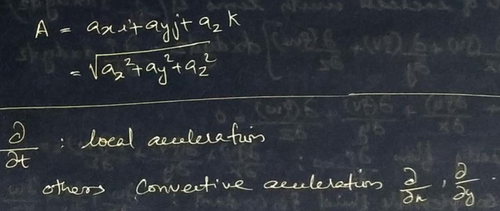 A = axi + ayj + azk
= √ax² + ay² + az²
∂/∂t : local acceleration
others convective acceleration ∂/∂x , ∂/∂y .